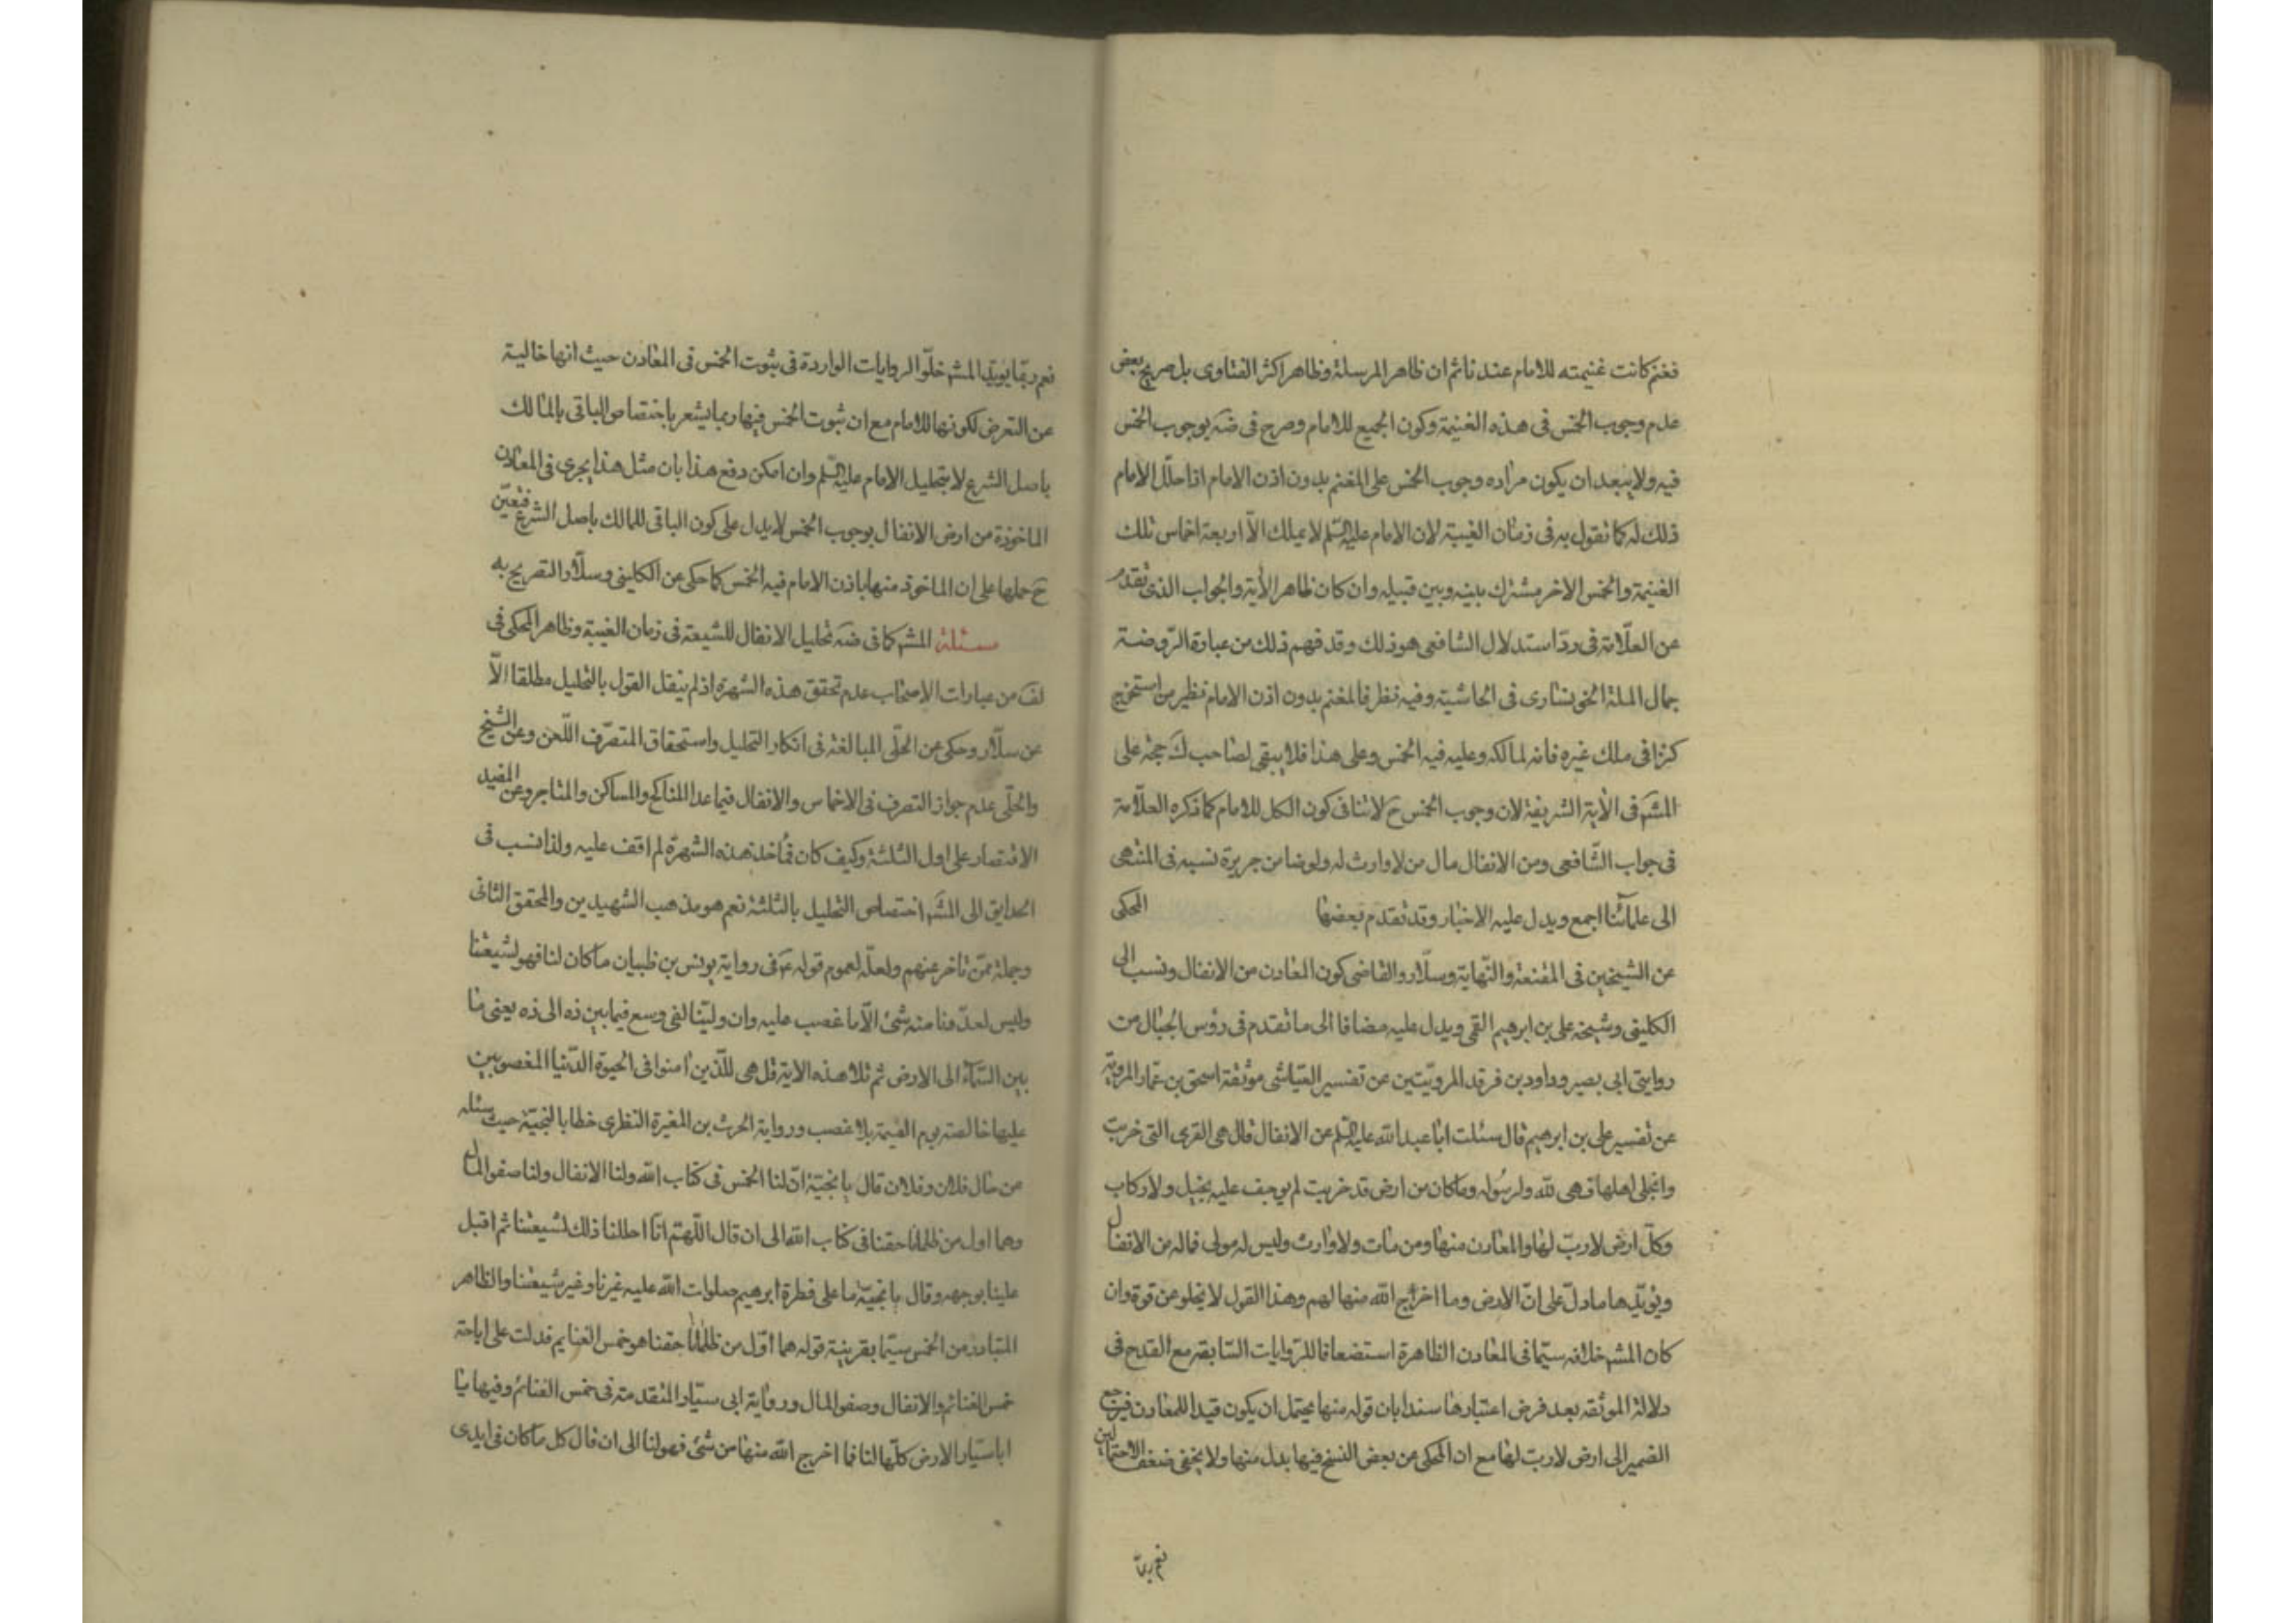 فغنم كانت غنيمته للامام عندنا ثم ان ظاهر المرسلة وظاهر اكثر الفتاوى بل صريح بعض
عدم وجوب الخمس فى هذه الغنيمة وكون الجميع للامام وصرح فى ضه بوجوب الخمس
فيه ولا يبعد ان يكون مراده وجوب الخمس على المغنم بدون اذن الامام اذا حلّل الامام
ذلك له كما نقول به فى زمان الغيبة لان الامام عليه السّلم لا يملك الّا اربعة اخماس تلك
الغنيمة والخمس الاخر مشترك بينه وبين قبيله وان كان ظاهر الآية والجواب الذى تقدم
عن العلّامة فى ردّ استدلال الشافعى هو ذلك وقد فهم ذلك من عبارة الرّوضة
جمال الملة الخونسارى فى الحاشية وفيه نظر فالمغنم بدون اذن الامام نظير من استخرج
كنزا فى ملك غيره فانه لمالكه وعليه فيه الخمس وعلى هذا فلا يبقى لصاحب ك حجة على
المشه فى الآية الشريفة لان وجوب الخمس ح لا ينافى كون الكل للامام كما ذكره العلّامة
فى جواب الشّافعى ومن الانفال مال من لا وارث له ولو ضامن جريرة نسبه فى المنتهى
الى علمائنا اجمع ويدل عليه الاخبار وقد تقدم بعضها المحكى
عن الشيخين فى المقنعة والنّهاية وسلّار والقاضى كون المعادن من الانفال ونسب الى
الكلينى وشيخه على بن ابرهيم القمى ويدل عليه مضافا الى ما تقدم فى رؤس الجبال من
روايتى ابى بصير وداود بن فرقد المرويّتين عن تفسير العيّاشى موثقة اسحق بن عمار المرويّة
عن تفسير على بن ابرهيم قال سئلت ابا عبد الله عليه السّلم عن الانفال قال هى القرى التى خربت
وانجلى اهلها فهى لله ولرسُوله وما كان من ارض قد خربت لم يوجف عليه بخيل ولا ركاب
وكلّ ارض لا ربّ لها والمعادن منها ومن مات ولا وارث وليس له مولى فماله من الانفال
ويؤيّدها ما دلّ على انّ الارض وما اخرج الله منها لهم وهذا القول لا يخلو عن قوة وان
كان المشه خلافه سيّما فى المعادن الظاهرة استضعافا للرّوايات السّابقه مع القدح فى
دلالة الموثقه بعد فرض اعتبارها سندا بان قوله منها يحتمل ان يكون قيدا للمعادن فيرجع
الضمير الى ارض لا ربّ لها مع ان المحكى عن بعض النسخ فيها بدل منها ولا يخفى ضعف الاحتمالين
نعم ربّما
نعم ربّما يؤيّد المشه خلّو الروايات الواردة فى ثبوت الخمس فى المعادن حيث انها خالية
عن التعرض لكونها للامام مع ان ثبوت الخمس فيها ربما يشعر باختصاص الباقى بالمالك
باصل الشرع لا بتحليل الامام عليه السّلم وان امكن دفع هذا بان مثل هذا يجرى فى المعادن
الماخوذة من ارض الانفال بوجوب الخمس لا يدل على كون الباقى للمالك باصل الشرع فتعيّن
ح حملها على ان الماخوذ منها باذن الامام فيه الخمس كما حكى عن الكلينى وسلّار التصريح به
مسئلة المشه كما فى ضه تحليل الانفال للشيعة فى زمان الغيبة وظاهر المحكى فى
لف من عبارات الاصحاب عدم تحقق هذه الشهرة اذ لم ينقل القول بالتحليل مطلقا الّا
عن سلّار وحكى عن الحلّى المبالغة فى انكار التحليل واستحقاق المتصرّف اللّعن وعن الشيخ
والحلّى عدم جواز التصرف فى الاخماس والانفال فيما عدا المناكح والمساكن والمتاجر وعن المفيد
الاقتصار على اول الثلثة وكيف كان فماخذ هذه الشهرة لم اقف عليه ولذا نسب فى
الحدايق الى المشه اختصاص التحليل بالثلثة نعم هو مذهب الشهيدين والمحقق الثانى
وجملة ممّن تاخر عنهم ولعلّه لعموم قوله ع فى رواية يونس بن ظبيان ما كان لنا فهو لشيعتنا
وليس لعدوّنا منه شئ الّا ما غصب عليه وان وليّنا لفى وسع فيما بين ذه الى ذه يعنى ما
بين السّمآء الى الارض ثم تلا هذه الاية قل هى للّذين امنوا فى الحيوة الدّنيا المغصوبين
عليها خالصة يوم القيمة بلا غصب ورواية الحرث بن المغيرة النظرى خطابا لنجيّة حيث سئله
من مال فلان وفلان قال يا نجيّة انّ لنا الخمس فى كتاب الله ولنا الانفال ولنا صفو المال
وهما اول من ظلمنا حقنا فى كتاب الله الى ان قال اللّهمّ انّا احللنا ذلك لشيعتنا ثم اقبل
علينا بوجهه وقال يا نجيّة ما على فطرة ابرهيم صلوات الله عليه غيرنا وغير شيعتنا والظاهر
المتبادر من الخمس سيّما بقرينة قوله هما اوّل من ظلمنا حقنا هو خمس الغنايم فدلت على اباحة
خمس الغنائم والانفال وصفو المال ورواية ابى سيّار المتقدمة فى خمس الغنائم وفيها يا
ابا سيّار الارض كلّها لنا فما اخرج الله منها من شئ فهو لنا الى ان قال كل ما كان فى ايدى